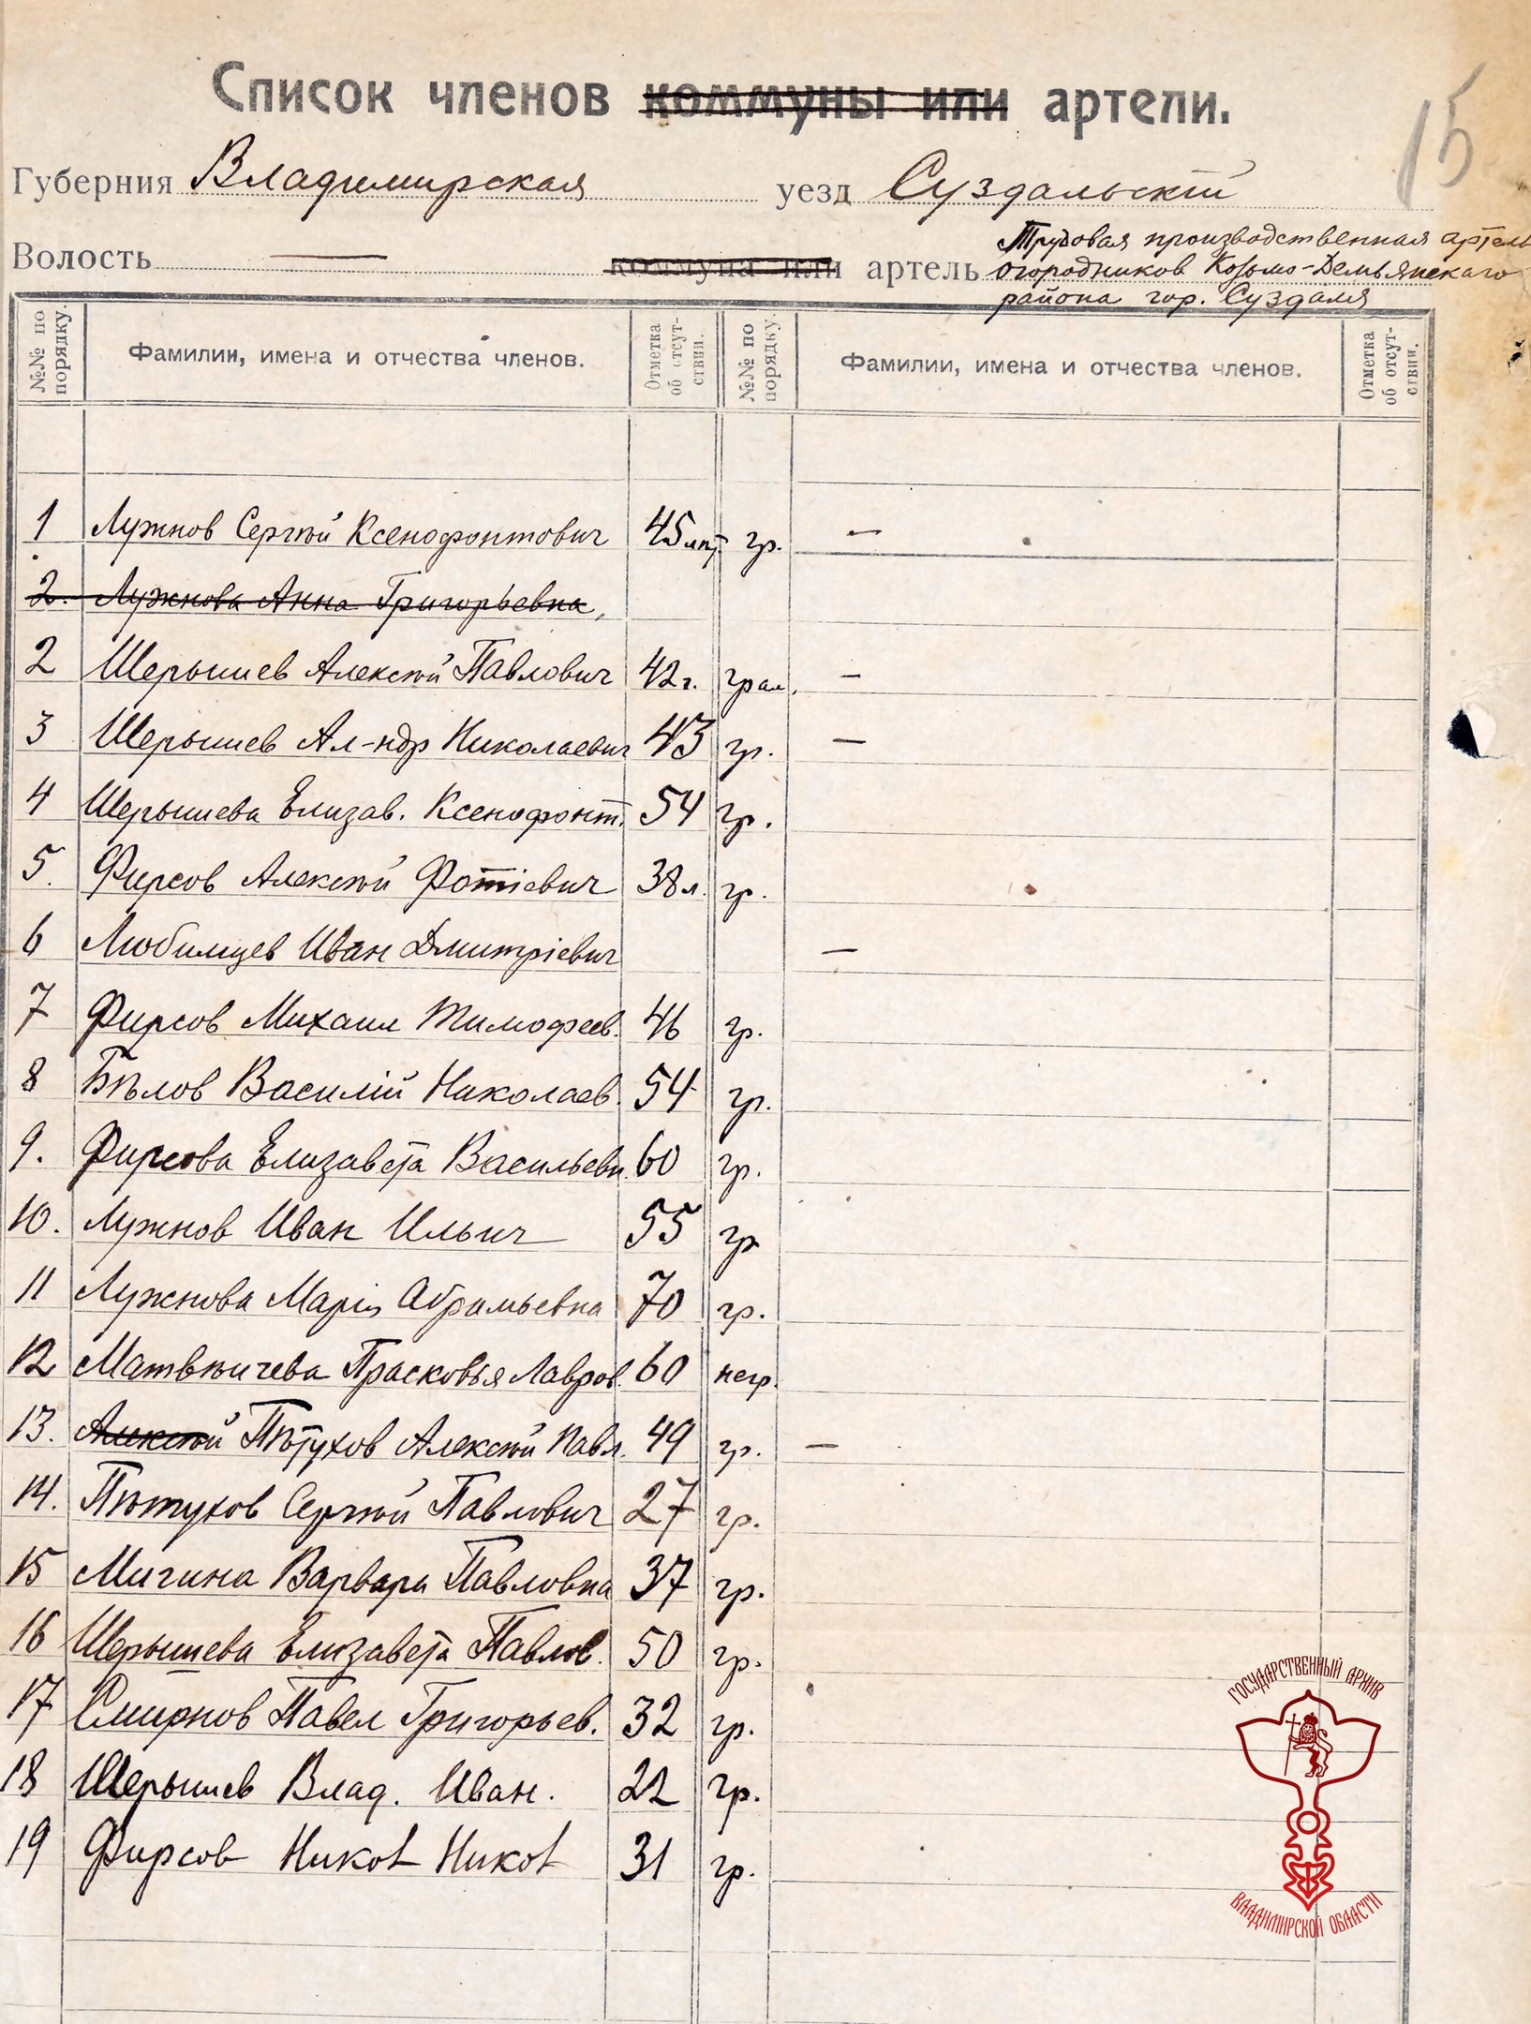 15
Список членов коммуны или артели.
Губерния Владимирская уезд Суздальскій
Волость — коммуна или артель Трудовая производственная артель
огородников Козьмо-Демьянскаго
района гор. Суздаля
№№ по порядку. Фамилии, имена и отчества членов. Отметка об отсутствии. №№ по порядку. Фамилии, имена и отчества членов. Отметка об отсутствии.
1 Лужнов Сергѣй Ксенофонтович 45 лѣт гр. —
2. Лужнова Анна Григорьевна,
2 Шерышев Алексѣй Павлович 42 г. грам. —
3 Шерышев Ал-ндр Николаевич 43 гр. —
4 Шерышева Елизав. Ксенофонт. 54 гр.
5. Фирсов Алексѣй Фотіевич 38 л. гр.
6 Любимцев Иван Дмитріевич —
7 Фирсов Михаил Тимофеев. 46 гр.
8 Бѣлов Василій Николаев. 54 гр.
9. Фирсова Елизавета Васильевн. 60 гр.
10. Лужнов Иван Ильич 55 гр
11 Лужнова Марія Абрамьевна 70 гр.
12 Матвѣичева Прасковья Лавров. 60 негр.
13. Алексѣй Пѣтухов Алексѣй Павл. 49 гр. —
14. Пѣтухов Сергѣй Павлович 27 гр.
15 Мигина Варвара Павловна 37 гр.
16 Шерышева Елизавета Павлов. 50 гр.
17 Смирнов Павел Григорьев. 32 гр.
18 Шерышев Влад. Иван. 22 гр.
19 Фирсов Никол Никол 31 гр.
ГОСУДАРСТВЕННЫЙ АРХИВ
ВЛАДИМИРСКОЙ ОБЛАСТИ